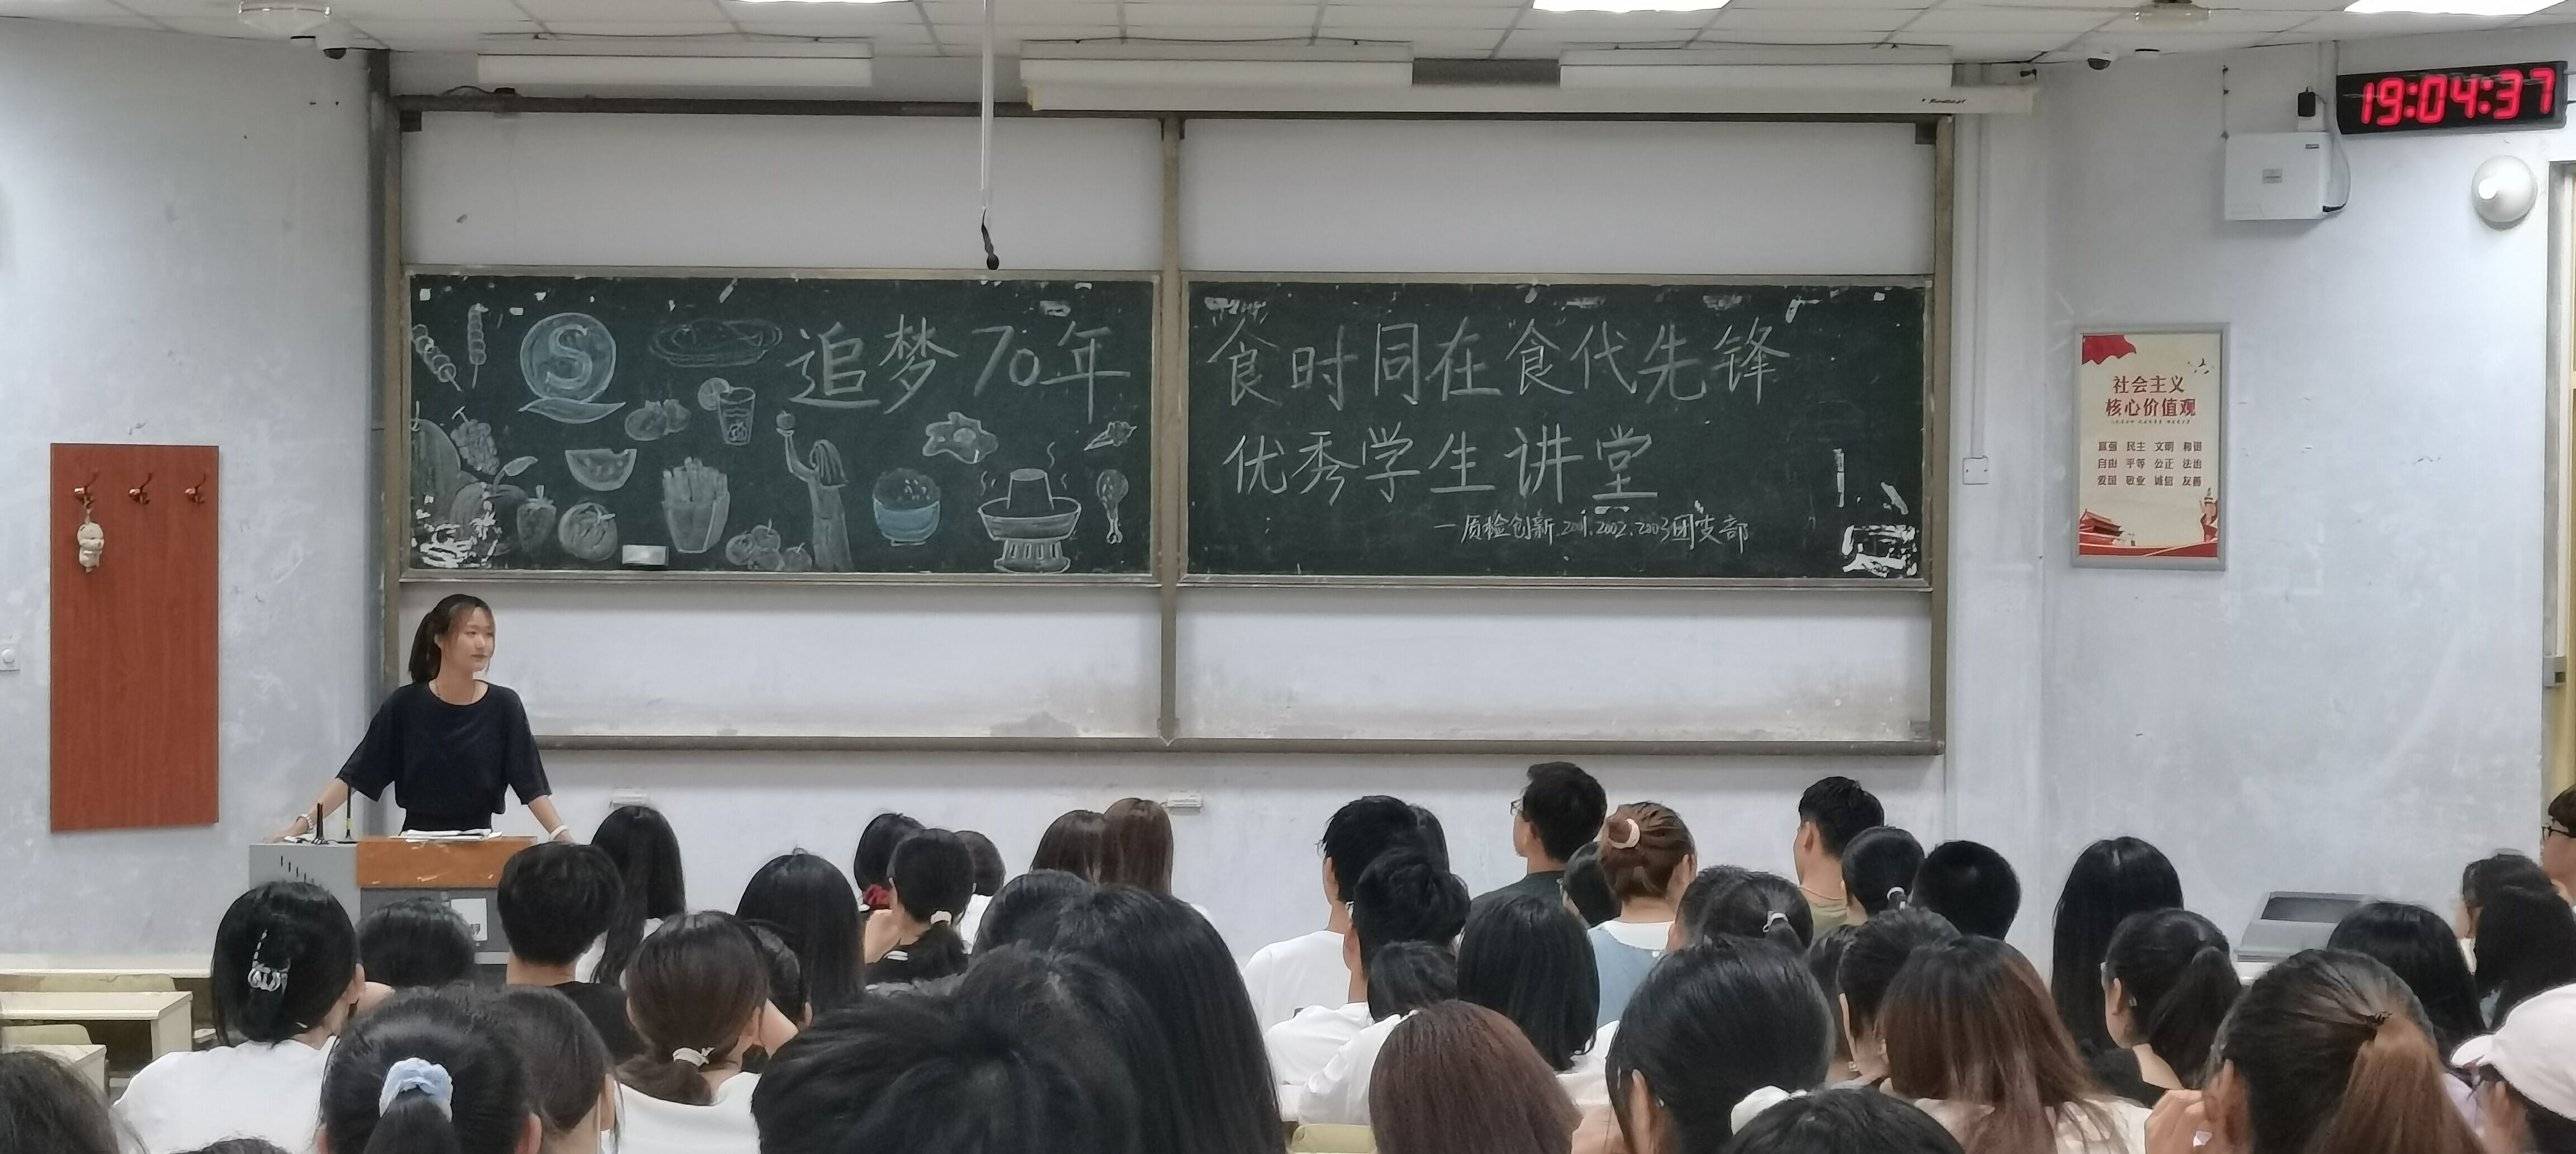 19:04:37
S
追梦70年
食时同在"食"代先锋
优秀学生讲堂
—质检创新.2001.2002.2003团支部
社会主义
核心价值观
富强 民主 文明 和谐
自由 平等 公正 法治
爱国 敬业 诚信 友善